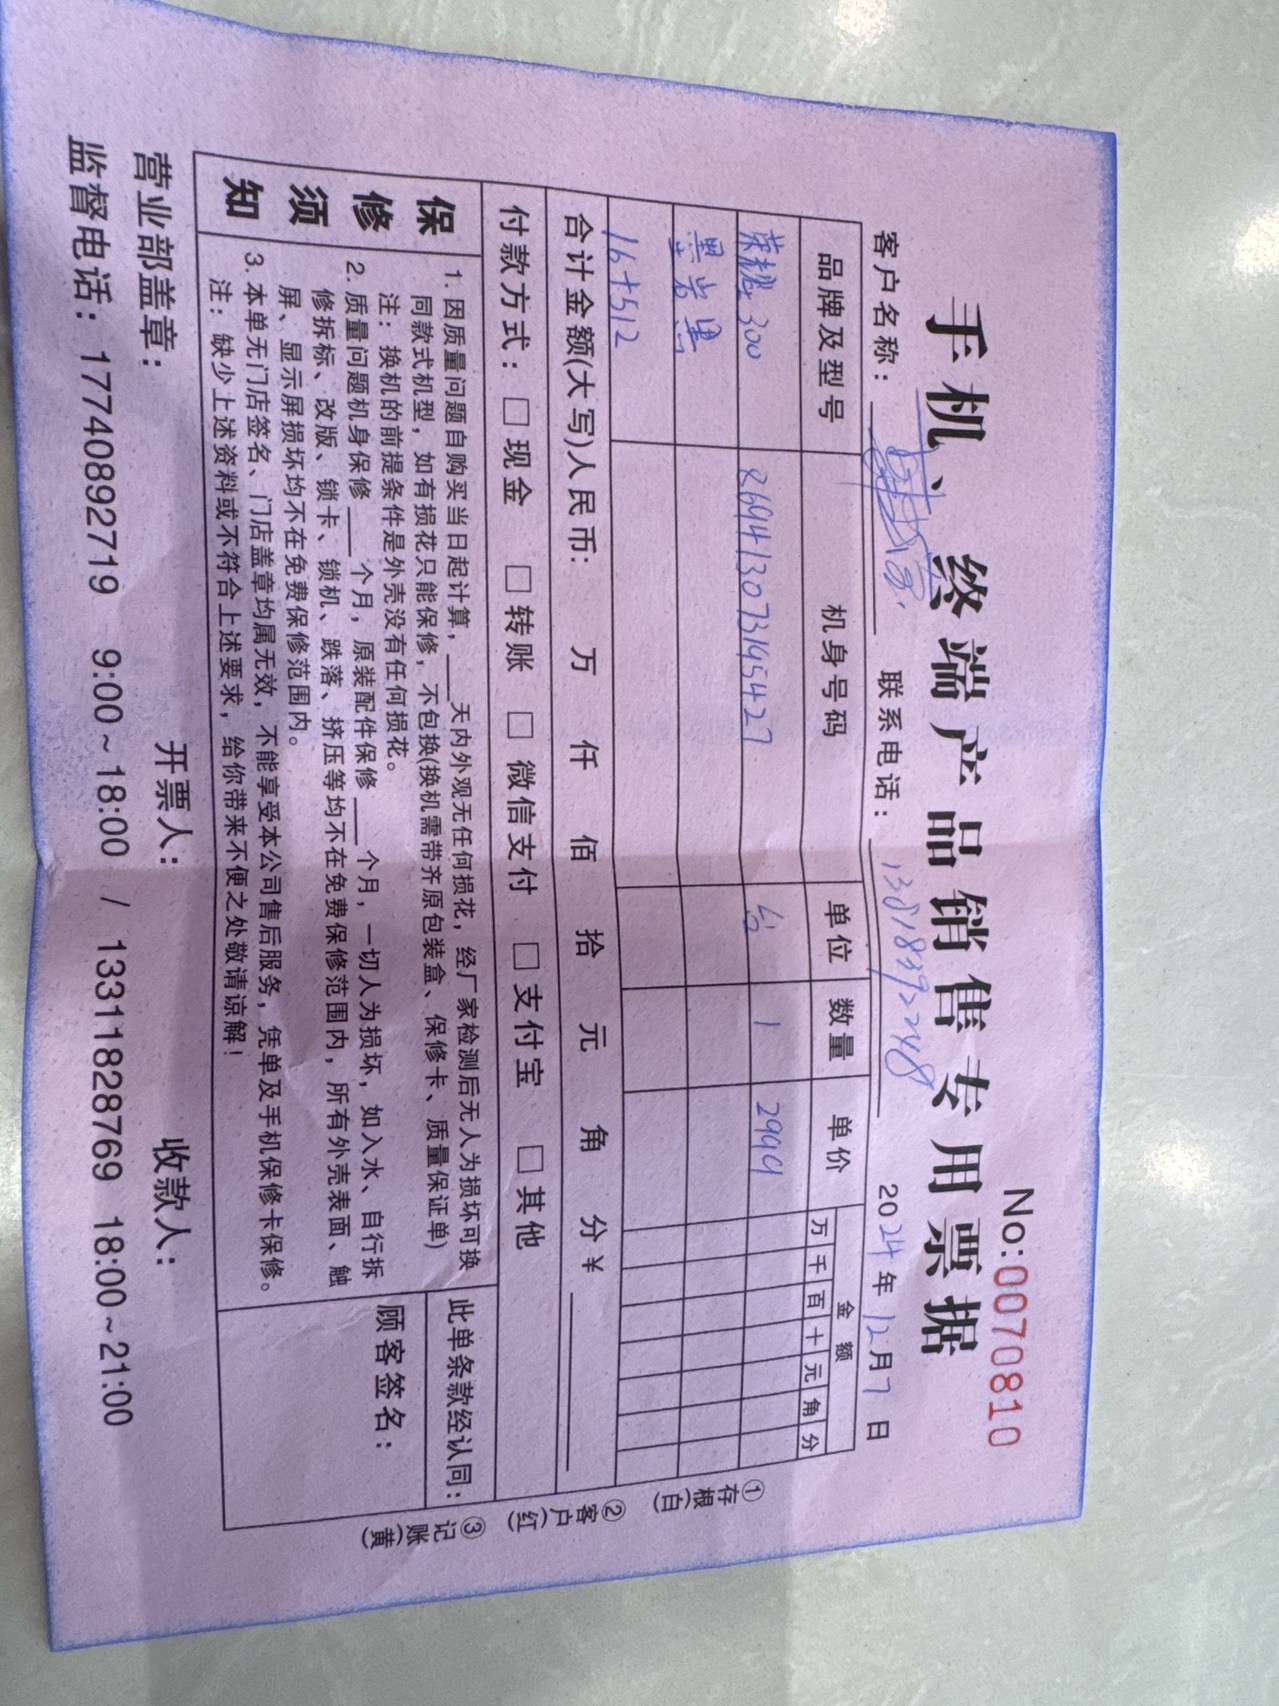 No:0070810
手机、终端产品销售专用票据
客户名称： 联系电话：13818392248 2024年12月7日
品牌及型号 机身号码 单位 数量 单价 金额
万 千 百 十 元 角 分
荣耀300 869413073195427 台 1 2999
黑岩黑
16+512
合计金额(大写)人民币： 万 仟 佰 拾 元 角 分 ¥
付款方式： □ 现金 □ 转账 □ 微信支付 □ 支付宝 □ 其他
保修须知
1. 因质量问题自购买当日起计算，___天内外观无任何损花，经厂家检测后无人为损坏可换
同款式机型，如有损花只能保修，不包换(换机需带齐原包装盒、保修卡、质量保证单)
注：换机的前提条件是外壳没有任何损花。
2. 质量问题机身保修___个月，原装配件保修___个月，一切人为损坏，如入水、自行拆
修拆标、改版、锁卡、锁机、跌落、挤压等均不在免费保修范围内，所有外壳表面、触
屏、显示屏损坏均不在免费保修范围内。
3. 本单无门店签名、门店盖章均属无效，不能享受本公司售后服务，凭单及手机保修卡保修。
注：缺少上述资料或不符合上述要求，给你带来不便之处敬请谅解！
此单条款经认同：
顾客签名：
①存根(白)
②客户(红)
③记账(黄)
营业部盖章： 开票人： 收款人：
监督电话：17740892719 9:00~18:00 / 13311828769 18:00~21:00